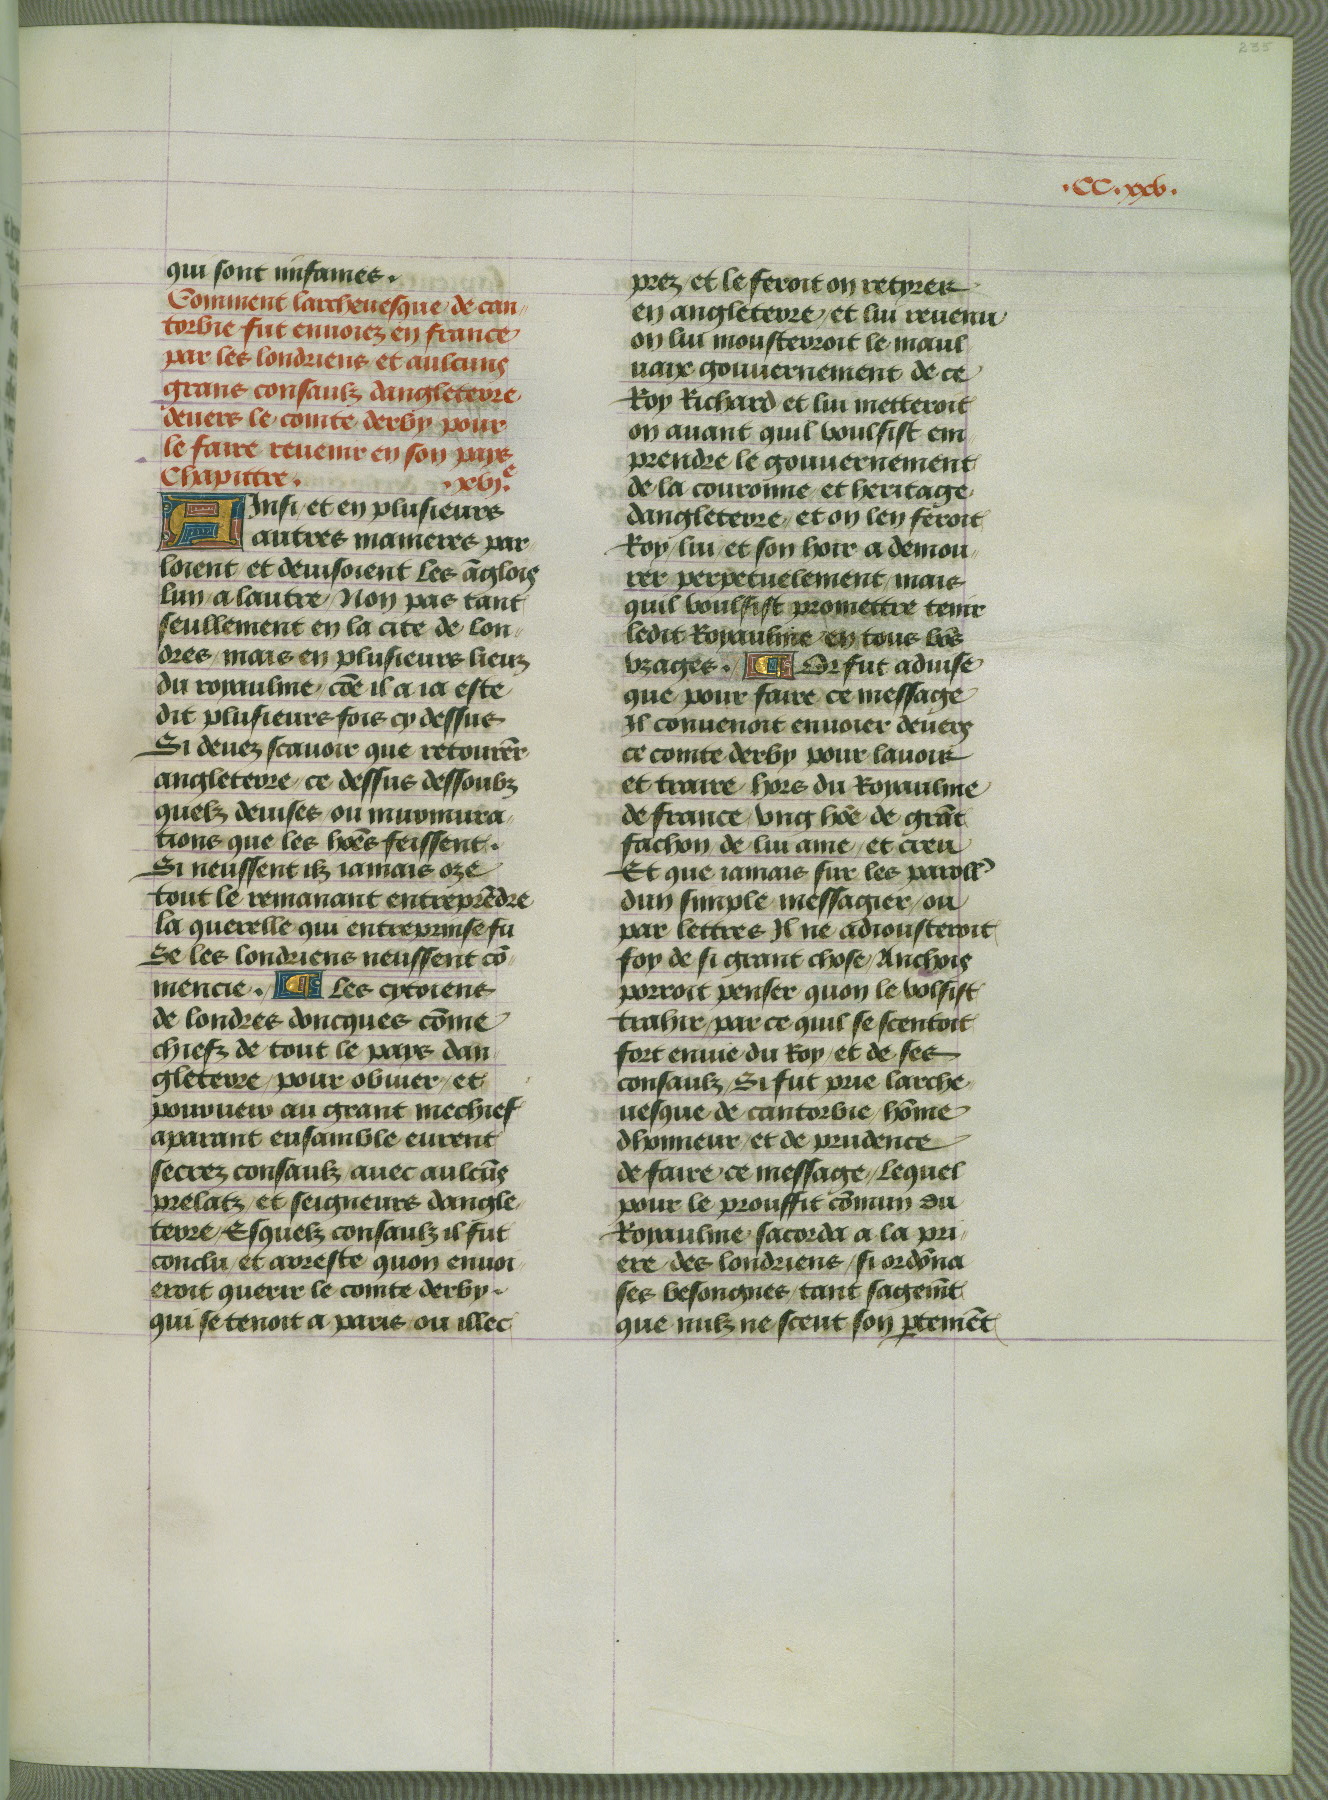 235
·CC·xxv·
qui sont infames.
Comment larcheuesque de can
torbie fut enuoiez en france
par les londriens et aulcuns
grans consaulz dangleterre
deuers le comte derby pour
le faire reuenir en son pays
Chapittre. .xvj.e
Ainsi et en plusieurs
autres manieres par
loient et deuisoient les āglois
lun a lautre Non pas tant
seullement en la cite de lon
dres mais en plusieurs lieux
du royaulme cōe il a ia este
dit plusieurs fois cy dessus
Si deuez scauoir que retourēr
angleterre ce dessus dessoubz
quelz deuises ou murmura
tions que les hoēs feissent.
Si neussent ilz iamais oze
tout le remanant entreprēdre
la querelle qui entreprinse fu
Se les londriens neussent cō
mencie. ¶ Les cytoiens
de londres doncques cōme
chiefz de tout le pays dan
gleterre pour obuier et
pourueir au grant mechief
aparant ensamble eurent
secrez consaulz auec aulcūs
prelatz et seigneurs dangle
terre Esquelz consaulz il fut
conclu et arreste quon enuoi
eroit querir le comte derby.
qui se tenoit a paris ou illec
prez et le feroit on retyrer
en angleterre et lui reuenu
on lui mousterroit le maul
uaix gouuernement de ce
Roy Richard et lui metteroit
on auant quil voulsist em
prendre le gouuernement
de la couronne et heritage
dangleterre et on len feroit
Roy lui et son hoir a demou
rer perpetuelement mais
quil voulsist promettre tenir
ledit Royaulme en tous bōs
vzages. ¶ Or fut aduise
que pour faire ce message
Il conuenoit enuoier deuers
ce comte derby pour lauoir
et traire hors du Royaulme
de france vng hōe de grāt
fachon de lui ame et creu
Et que iamais sur les paroll'
dun simple messagier ou
par lettres Il ne adiousteroit
foy de si grant chose Anchois
porroit penser quon le volsist
trahir par ce quil se scentoit
fort enuie du Roy et de ses
consaulz Si fut prie larche
uesque de cantorbie hōme
dhonneur et de prudence
de faire ce message lequel
pour le prouffit cōmun du
Royaulme sacorda a la pri
ere des londriens si ordōna
ses besongnes tant sagemīt
que nulz ne sceut son ꝑtemēt